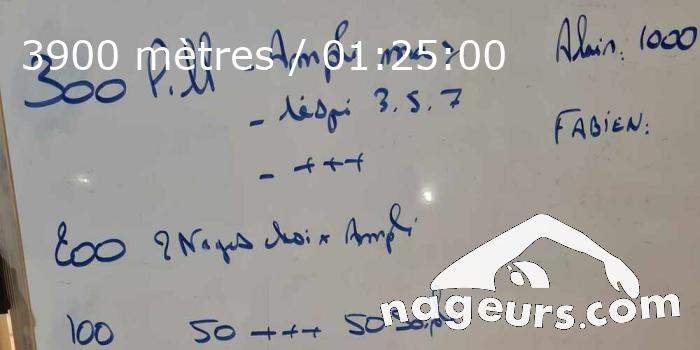 3900 mètres / 01:25:00
300 P.ull - Ampli max
Alain: 1000
- Réspi 3.5.7
FABIEN:
- +++
200 2 Nages choix Ampli
100 50 +++ 50 Souple
nageurs.com